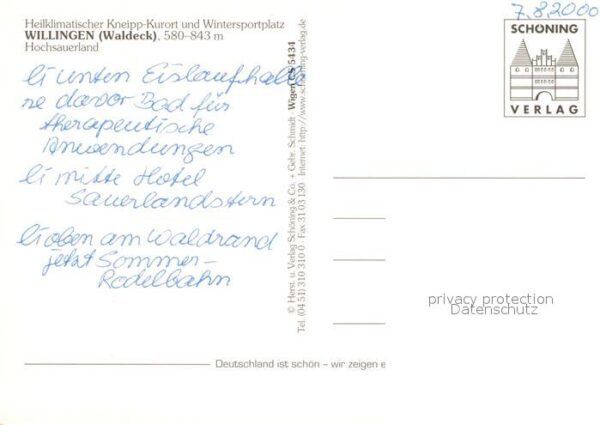 Heilklimatischer Kneipp-Kurort und Wintersportplatz
WILLINGEN (Waldeck), 580–843 m
Hochsauerland
li unten Eislaufhalle
re davor Bad für
therapeutische
Anwendungen
li mitte Hotel
Sauerlandstern
li oben am Waldrand
jetzt Sommer-
Rodelbahn
© Herst. u. Verlag Schöning & Co. + Gebr. Schmidt · Wigen CS 5434
Tel. (04 51) 310 310 0 · Fax 31 03 130 · Internet: http://www.schoening-verlag.de
7.8.2000
SCHÖNING
VERLAG
privacy protection
Datenschutz
Deutschland ist schön – wir zeigen e